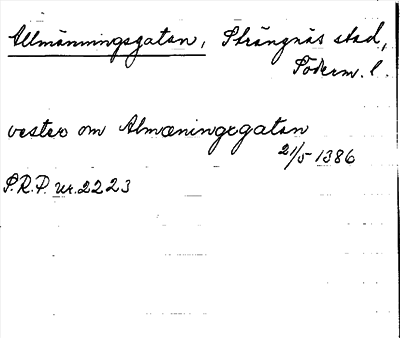 Allmänningsgatan, Strängnäs stad,
Söderm. l.
vester om Almæningxgatan
21/5-1386
S.R.P. nr. 2223